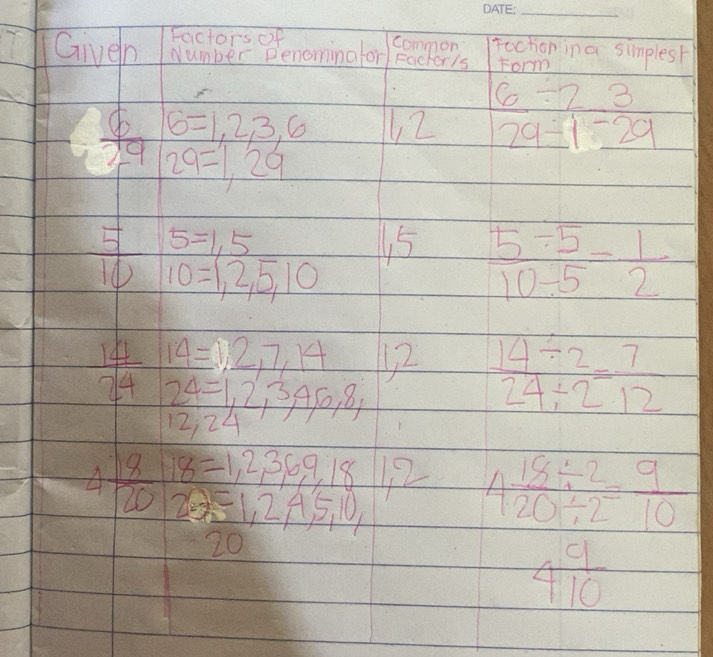 DATE:
Given Factors of Number Denominator Common Factor/s Faction in a simplest Form
6/29 6=1,2,3,6 1,2 6÷2/29÷1=3/29
29=1, 29
5/10 5=1,5 1,5 5÷5/10÷5=1/2
10=1,2,5,10
14/24 14=1,2,7,14 1,2 14÷2/24÷2=7/12
24=1,2,3,4,6,8,
12,24
4 18/20 18=1,2,3,6,9,18 1,2 4 18÷2/20÷2=9/10
20=1,2,4,5,10,
20
4 9/10